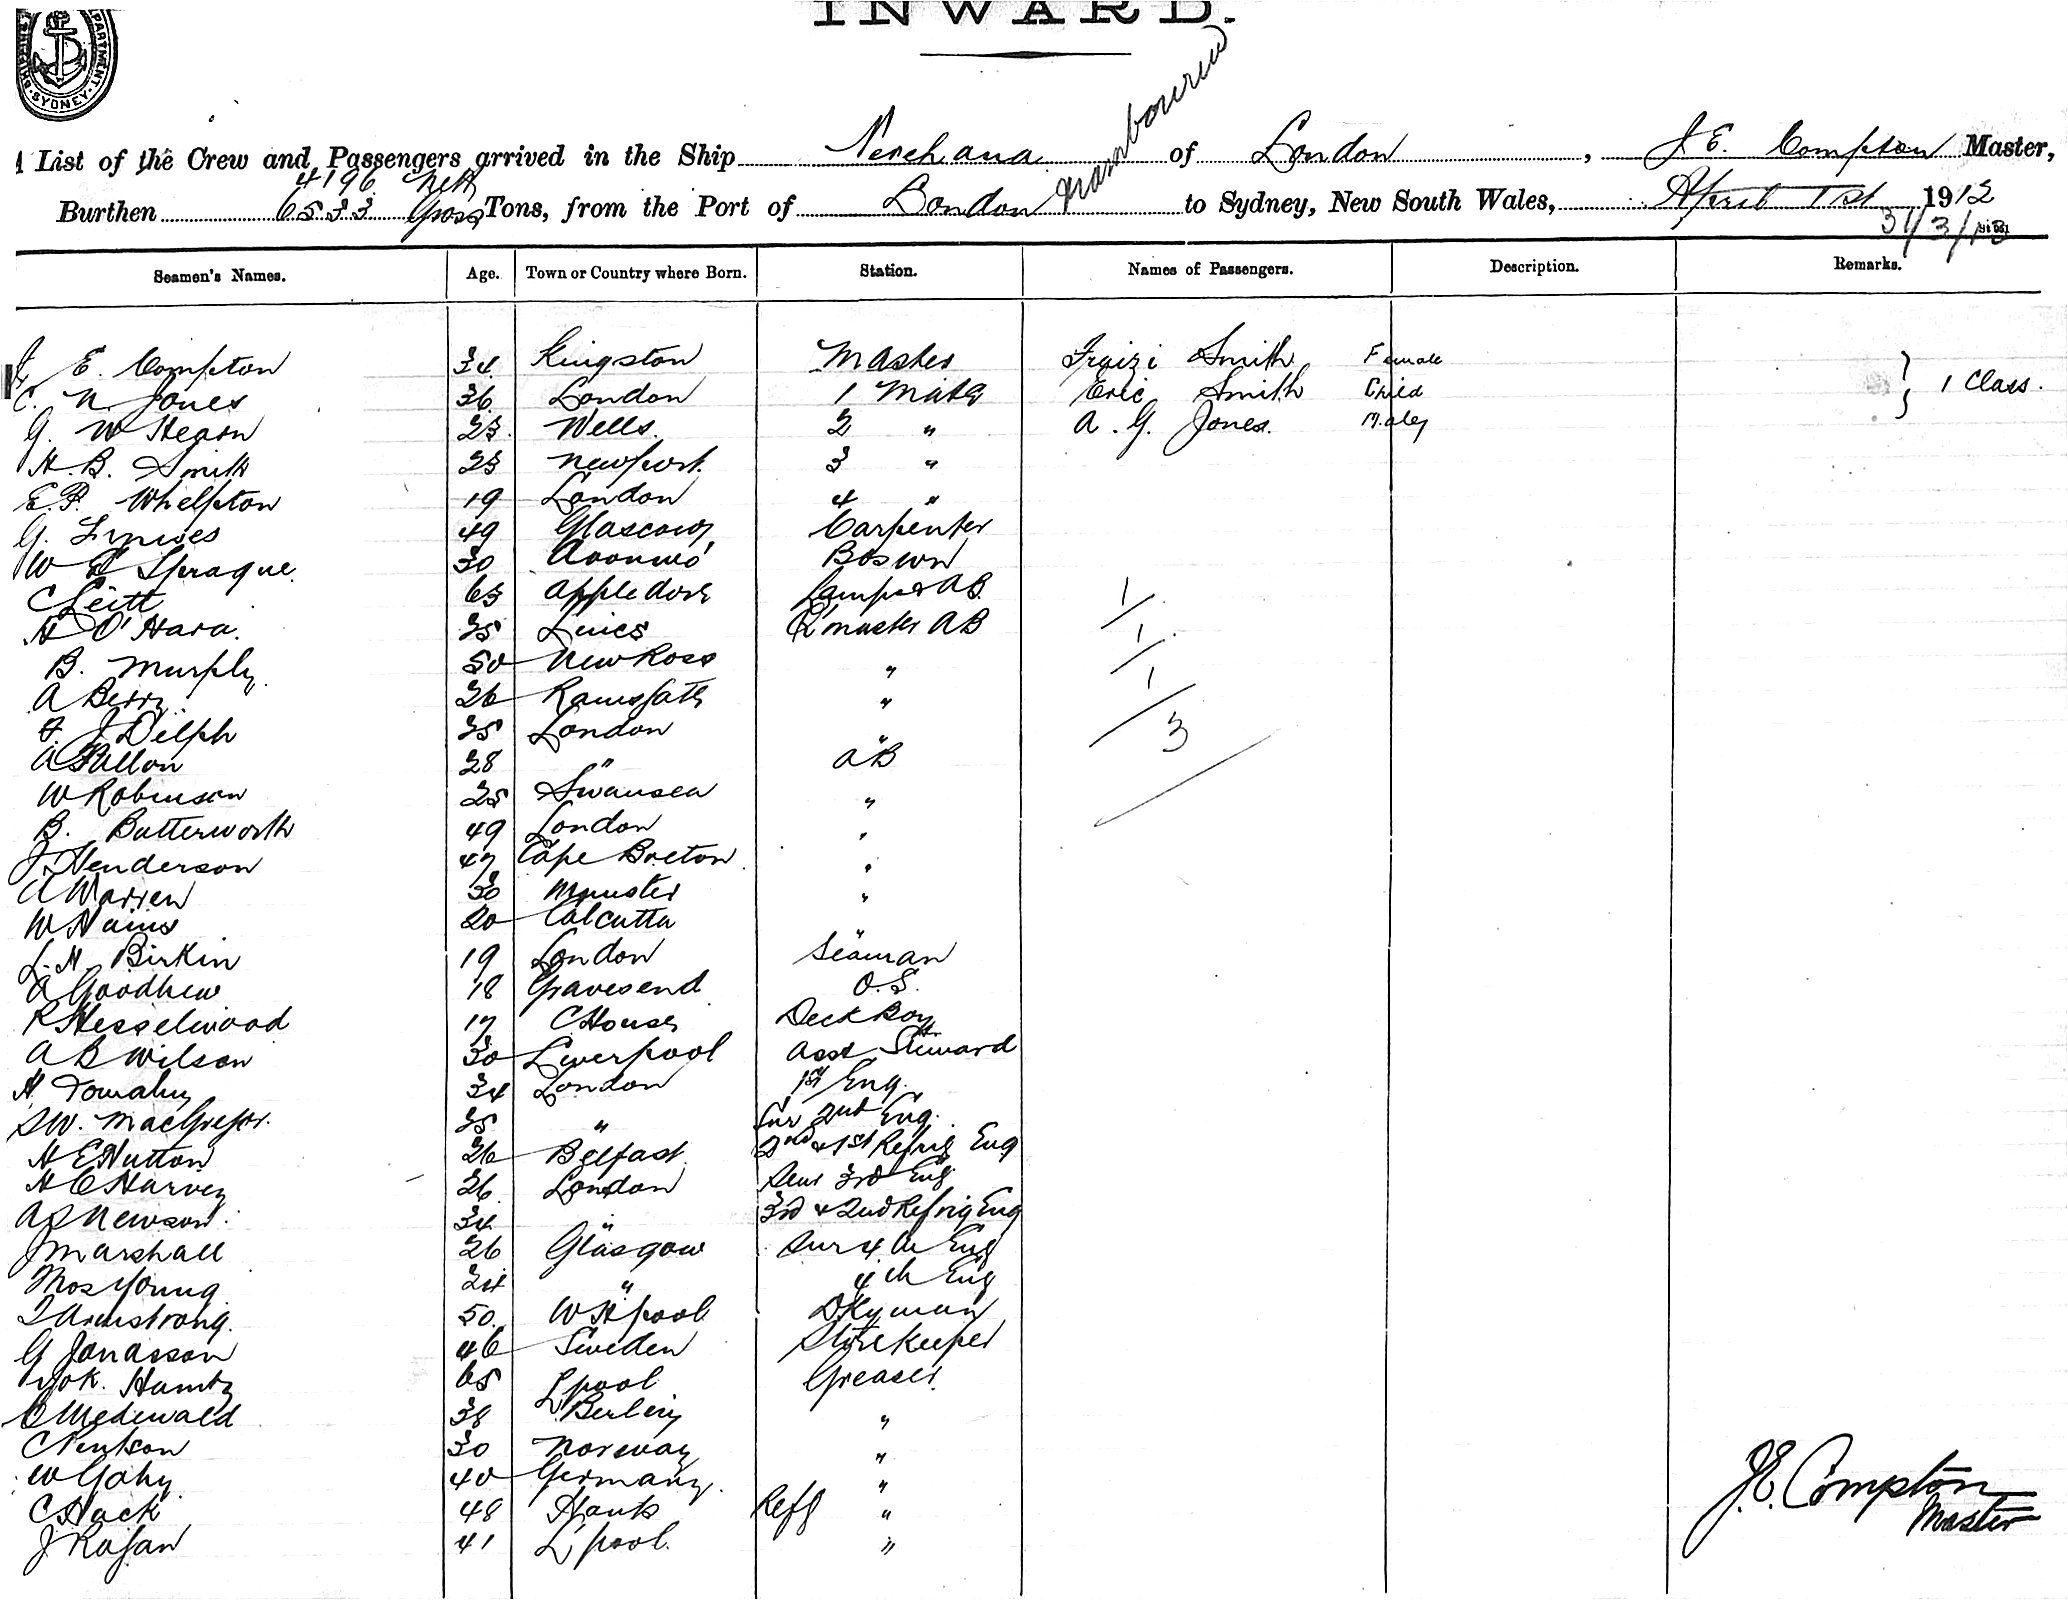 INWARD.
SYDNEY
List of the Crew and Passengers arrived in the Ship of London, J. E. Compton Master,
4196 Nett
Burthen 6533 Gross Tons, from the Port of London to Sydney, New South Wales, April 1st 1912
31/3/12
Seamen's Names. Age. Town or Country where Born. Station. Names of Passengers. Description. Remarks.
J. E. Compton 34 Kingston Master Smith Female
C. N. Jones 36 London 1 Mate Eric Smith Child 1 Class.
G. W Hearn 23 Wells. 2 " A. G. Jones.
H. B. Smith 23 Newport 3 "
E. P. Whelpton 19 London 4 "
G. 49 Glascow Carpenter
W E Sprague 30 Boswn
C Leitt 63 Appledore Lamps & AB
H O'Hara. 35 Q'master AB 1
B. Murphy 50 New Ross " 1
A Berry 26 Ramsgate " 1
J Delph 35 London " 3
A Fallon 28 " AB
W Robinson 25 Swansea "
B. Butterworth 49 London "
J. Henderson 47 Cape Breton "
A Warren 30 Munster "
W Hains 20 Calcutta "
L. H. Birkin 19 London Seaman
A Goodhew 18 Gravesend O.S.
R Hesselwood 17 Deck Boy
A B Wilson 30 Liverpool Asst Steward
H. 34 London 1st Eng.
MacGregor. 35 " 2nd Eng.
H E Hutton 26 Belfast 2nd & 1st Refrig Eng
H C Harvey 26 London Senr 3rd Eng
A S Newson. 34 " 3rd & 2nd Refrig Eng
J Marshall 26 Glasgow 4th Eng
Thos Young 24 " 4th Eng
J Armstrong. 50 W H'pool DKyman
G Jonasson 46 Sweden Storekeeper
65 L'pool Greaser
38 Berlin "
C 30 Norway "
W 40 Germany. "
C Hack 48 Hants Refg "
J 41 L'pool. "
J. E. Compton
Master